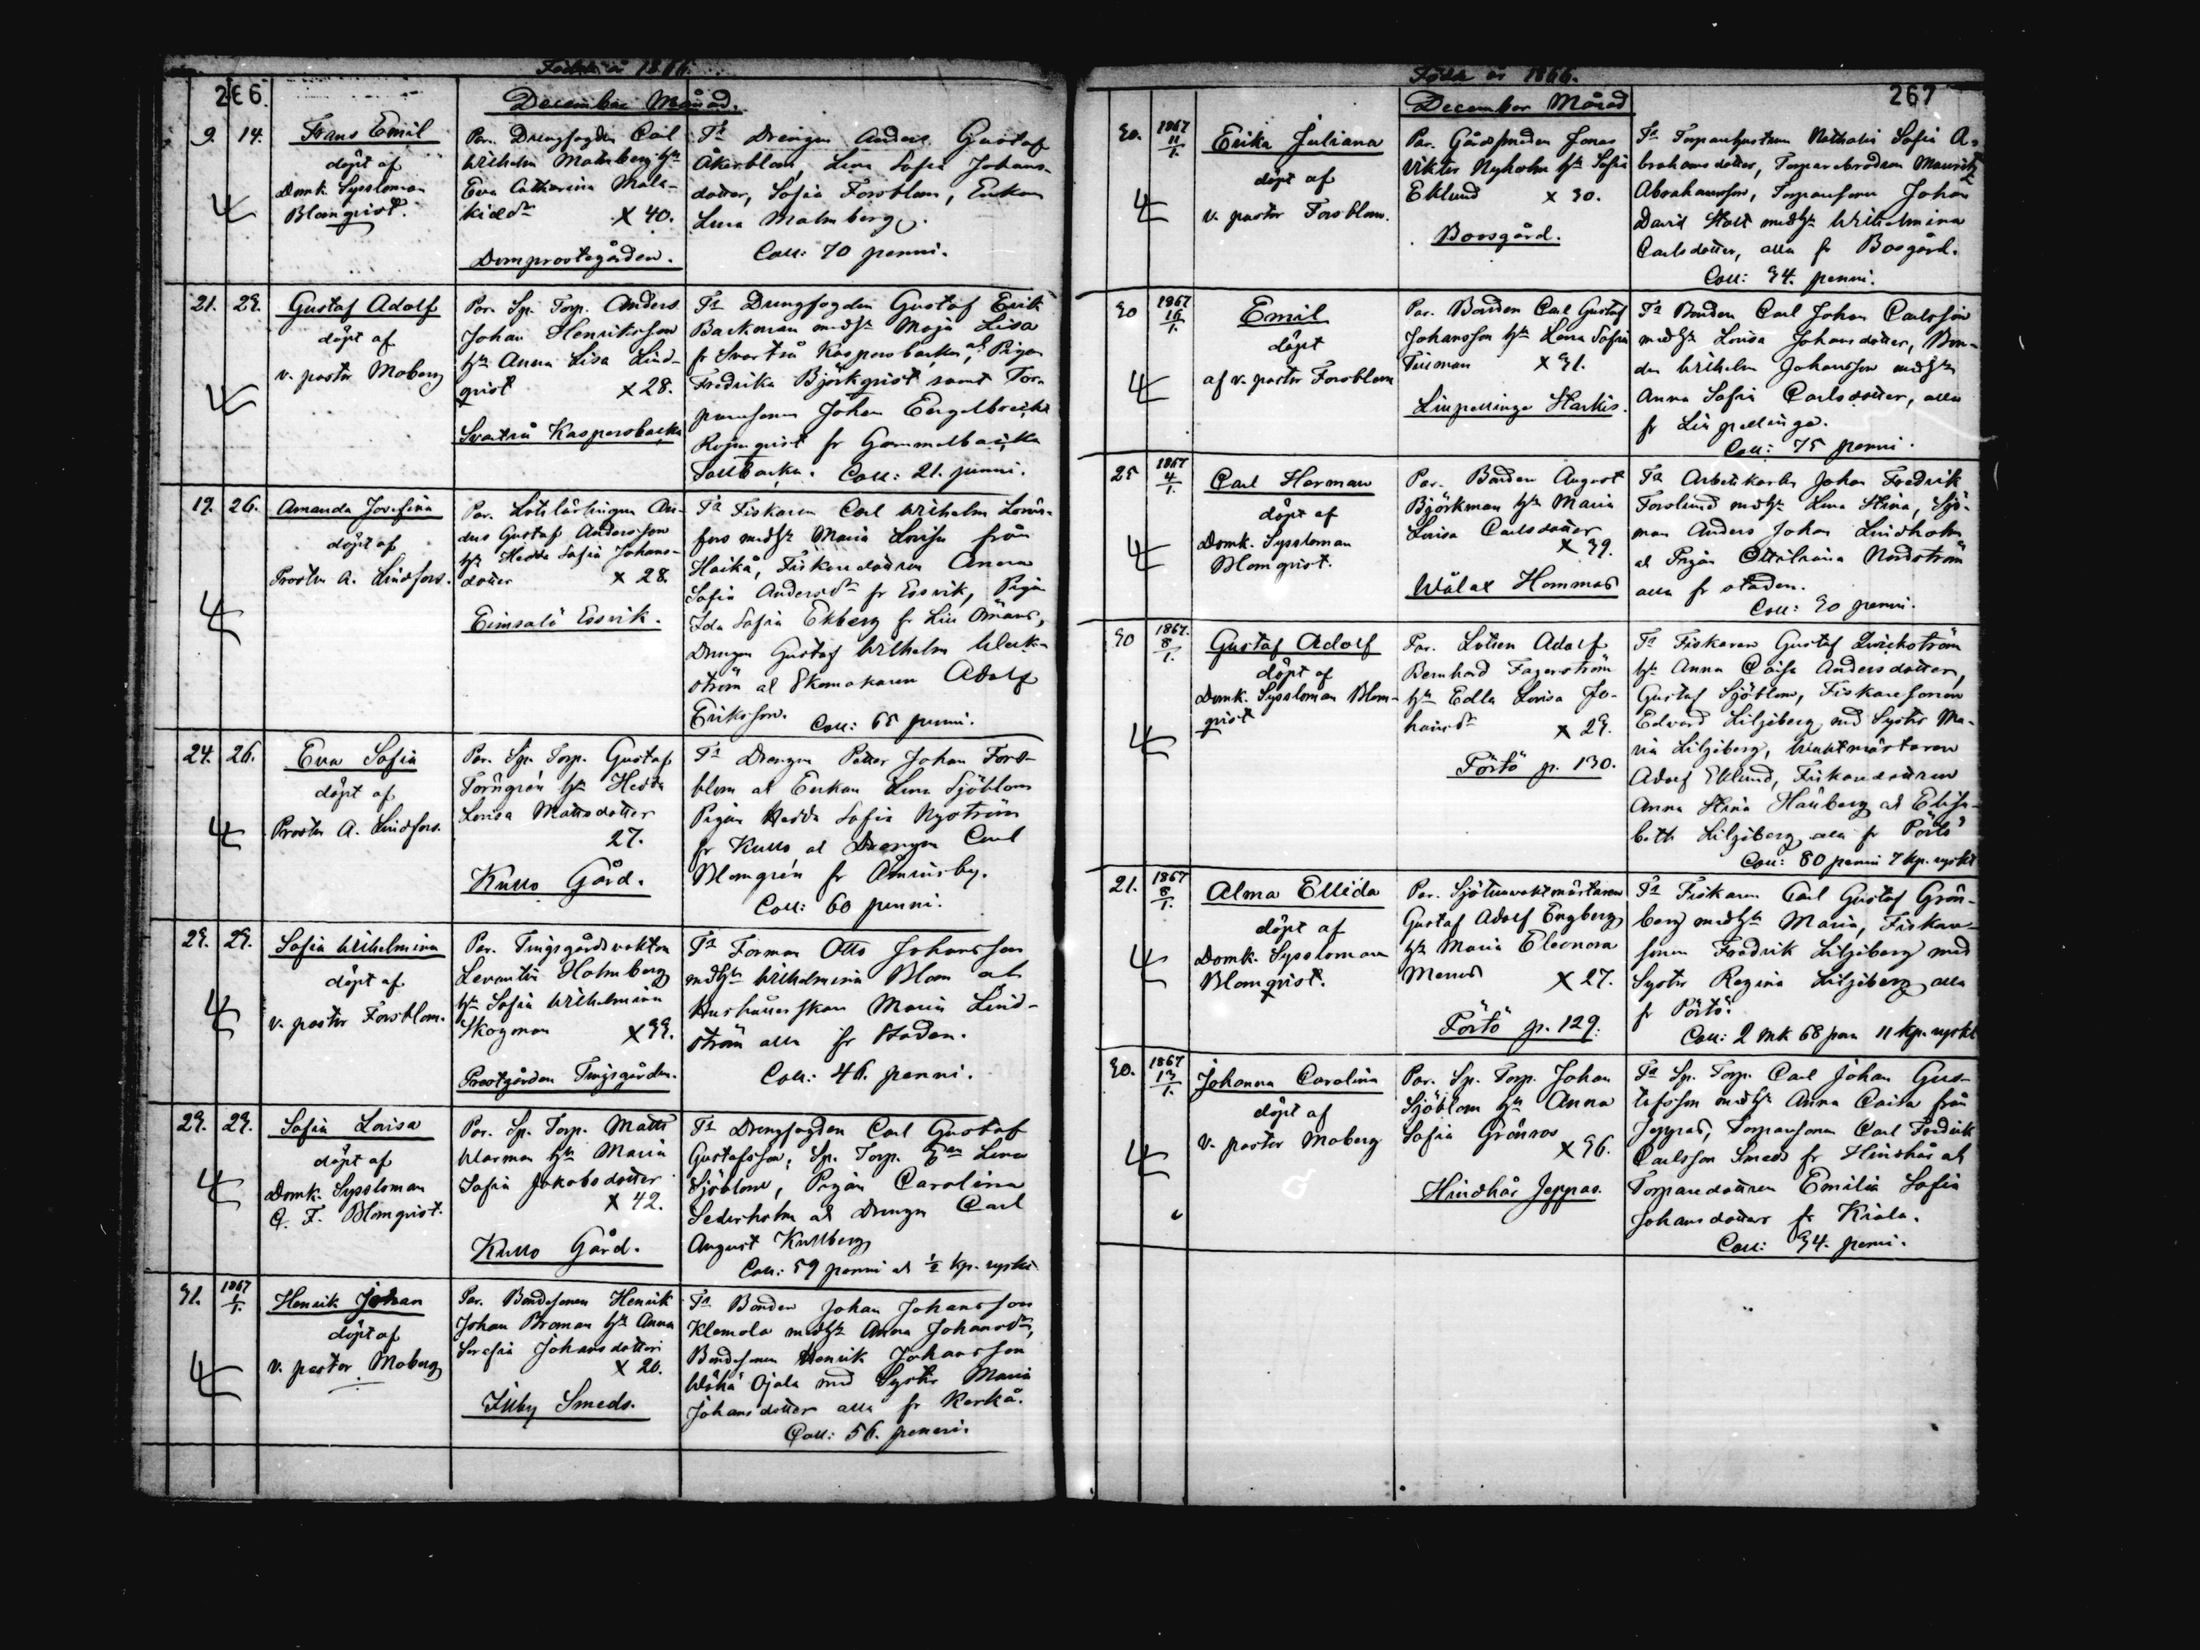 Födde år 1866.
266.
December Månad.
9. 14. Frans Emil
döpt af
Domk. Syssloman
Blomqvist.
Par. Drengfogden Carl
Wilhelm Malmberg hu
Eva Catharina Mala-
kidr
X 40.
Domprostegården.
Fr Drengen Anders Gustaf
Åkerblom, Lena Sofia Johans-
dotter, Sofia Forsblom, Enkan
Lena Malmberg.
Coll: 70 penni.
21. 23. Gustaf Adolf
döpt af
v. pastor Moberg
Par. Sp. Torp. Anders
Johan Henriksson
hu Anna Lisa Lind-
qvist X 28.
Svartså Kaspersbacka
Fr Drengfogden Gustaf Erik
Backman med hu Maja Lisa
fr Svartså Kaspersbacka, Pigan
Fredrika Björkqvist samt Tor-
paresonen Johan Engelbrecht
Rosenqvist fr Gammelbacka
Tallbacka. Coll: 21. penni.
19. 26. Amanda Josefina
döpt af
Prosten A. Lindfors.
Par. Lotslärlingen An-
ders Gustaf Andersson
hu Hedda Sofia Johans-
dotter X 28.
Eimsalö Essvik.
Fr Fiskaren Carl Wilhelm Lönn-
fors med hu Maria Lovisa från
Haikå, Fiskaredottren Anna
Sofia Andersdr fr Essvik, Pigan
Ida Sofia Ekberg fr Lill Ömans,
Drengen Gustaf Wilhelm Weck-
ström at Skomakaren Adolf
Eriksson. Coll: 65 penni.
24. 26. Eva Sofia
döpt af
Prosten A. Lindfors.
Par. Sp. Torp. Gustaf
Törngrén hu Hedda
Lovisa Mattsdotter
27.
Kullo Gård.
Fr Drengen Petter Johan Fors-
blom at Enkan Lena Sjöblom
Pigan Hedda Sofia Nyström
fr Kullo at Drengen Carl
Blomgrén fr Åminsby.
Coll: 60 penni.
23. 29. Sofia Wilhelmina
döpt af
v. pastor Forsblom.
Par. Tingsgårdsvakten
Levantin Holmberg
hu Sofia Wilhelmina
Skogman X 33.
Prostgården Tingsgården.
Fr Forman Otto Johansson
med hu Wilhelmina Blom at
Hushållerskan Maria Lind-
ström alla fr Staden.
Coll: 46. penni.
23. 29. Sofia Lovisa
döpt af
Domk. Syssloman
G. F. Blomqvist.
Par. Sp. Torp. Matts
Warman hu Maria
Sofia Jakobsdotter
X 42.
Kullo Gård.
Fr Drengfogden Carl Gustaf
Gustafsson, Sp. Torp. Lena
Sjöblom, Pigan Carolina
Sederholm at Drengen Carl
August Kullberg
Coll: 59 penni at ½ kp. ryskt
31. 1867 1/1. Henrik Johan
döpt af
v. pastor Moberg
Par. Bondesonen Henrik
Johan Broman hu Anna
Serafia Johansdotter
X 20.
Illby Smeds.
Fr Bonden Johan Johansson
Klemola med hu Anna Johansdr,
Bondesonen Henrik Johansson
Wähä Ojala med Syster Maria
Johansdotter alla fr Kerkå.
Coll: 56. penni.
Födde år 1866.
December Månad
267
30. 1867 11/1. Erika Juliana
döpt af
v. pastor Forsblom.
Par. Gårdssmeden Jonas
Viktor Nyholm hu Sofia
Eklund X 30.
Bosgård.
Fr Torparehustrun Nathalia Sofia A-
brahamsdotter, Torparebrodren Mauritz
Abrahamsson, Torparesonen Johan
David Holt med hu Wilhelmina
Carlsdotter, alla fr Bosgård.
Coll: 34. penni.
30 1867 16/1. Emil
döpt
af v. pastor Forsblom
Par. Bonden Carl Gustaf
Johansson hu Lena Sofia
Timan X 31.
Lillpellinge Harkis.
Fr Bonden Carl Johan Carlsson
med hu Lovisa Johansdotter, Bon-
den Wilhelm Johansson med hu
Anna Sofia Carlsdotter, alla
fr Lillpellinge.
Coll: 75 penni.
25 1867 4/1. Carl Herman
döpt af
Domk. Syssloman
Blomqvist.
Par. Bonden August
Björkman hu Maria
Lovisa Carlsdotter
X 39.
Wålax Hommas
Fr Arbetskarlen Johan Fredrik
Forslund med hu Lena Stina, Sjö-
man Anders Johan Lindholm
at Pigan Ottiliana Nordström
alla fr staden.
Coll: 30 penni.
30 1867. 8/1. Gustaf Adolf
döpt af
Domk. Syssloman Blom-
qvist
Par. Lotsen Adolf
Bernhard Fagerström
hu Edla Lovisa Jo-
hansdr X 23.
Pörtö p. 130.
Fr Fiskaren Gustaf Lurichström
hu Anna Caisa Andersdotter,
Gustaf Sjöblom, Fiskaresonen
Edvard Liljeberg med Syster Ma-
ria Liljeberg, Waktmästaren
Adolf Eklund, Fiskaredottren
Anna Stina Hanberg at Elisa-
beth Liljeberg alla fr Pörtö
Coll: 80 penni 7 kp. ryskt
21. 1867 8/1. Alma Ellida
döpt af
Domk. Syssloman
Blomqvist.
Par. Sjötullvaktmästaren
Gustaf Adolf Engberg
hu Maria Eleonora
X 27.
Pörtö p. 129.
Fr Fiskaren Carl Gustaf Grön-
berg med hu Maria, Fiskare-
sonen Fredrik Liljeberg med
Syster Regina Liljeberg alla
fr Pörtö.
Coll: 2 mk 68 pen 11 kp. ryskt
30. 1867 13/1. Johanna Carolina
döpt af
v. pastor Moberg
Par. Sp. Torp. Johan
Sjöblom hu Anna
Sofia Grönros
X 36.
Hindhår Jeppas.
Fr Sp. Torp. Carl Johan Gus-
tafsson med hu Anna Caisa från
Jeppas, Torparesonen Carl Fredrik
Carlsson Smeds fr Hindhår at
Torparedottren Emilia Sofia
Johansdotter fr Kiala.
Coll: 34. penni.